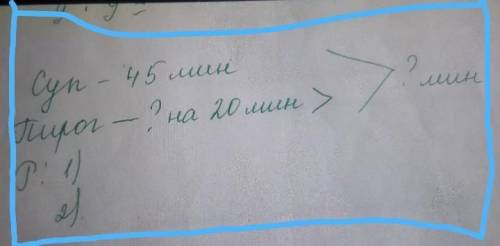 Суп – 45 мин
Пирог – ? на 20 мин >
? мин
Р: 1)
2)